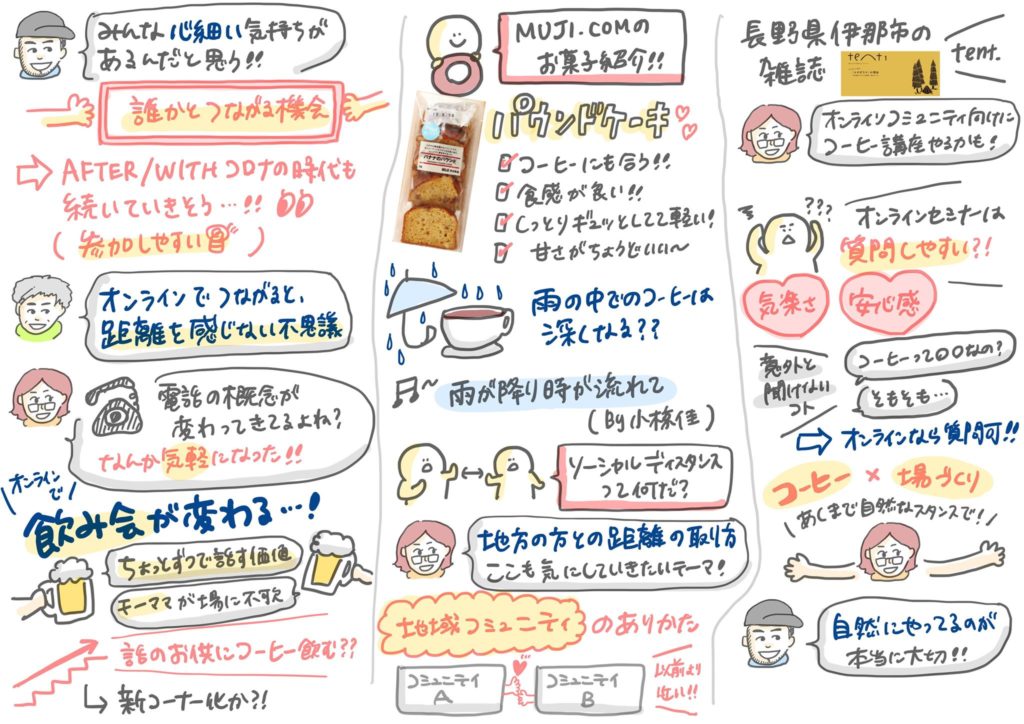 みんな心細い気持ちが
あるんだと思う!!
誰かとつながる機会
⇨ AFTER/WITHコロナの時代も
続いていきそう…!!
(参加しやすい)
オンラインでつながると、
距離を感じない不思議
電話の概念が
変わってきてるよね?
なんか気軽になった!!
オンラインで
飲み会が変わる…!
ちょっとずつで話す価値
モーママが場に不可欠
話のお供にコーヒー飲む??
↳ 新コーナー化か?!
MUJI.COMの
お菓子紹介!!
パウンドケーキ
コーヒーにも合う!!
食感が良い!!
しっとりギュッとしてて軽い!
甘さがちょうどいい〜
雨の中でのコーヒーは
深くなる??
♫〜 雨が降り時が流れて
(By 小椋佳)
ソーシャルディスタンス
って何だ?
地方の方との距離の取り方
ここも気にしていきたいテーマ!
地域コミュニティのありかた
コミュニティ
A
コミュニティ
B
以前より
近い!!
長野県伊那市の
雑誌
tent.
オンラインコミュニティ向けに
コーヒー講座やるかも!
???
オンラインセミナーは
質問しやすい?!
気楽さ
安心感
意外と
聞けない
コト
コーヒーって〇〇なの?
そもそも…
⇨ オンラインなら質問可!!
コーヒー × 場づくり
あくまで自然なスタンスで!
自然にやってるのが
本当に大切!!